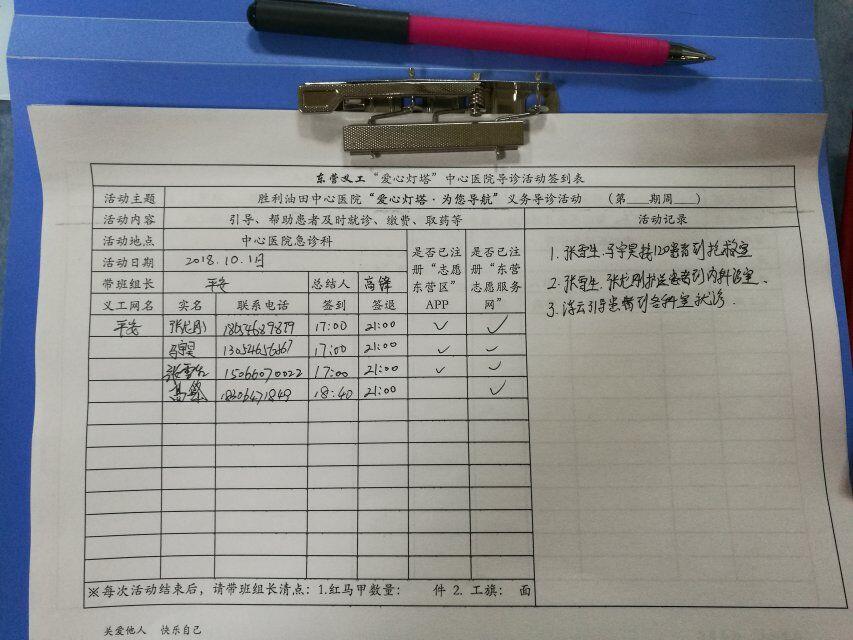 东营义工“爱心灯塔”中心医院导诊活动签到表
活动主题 胜利油田中心医院“爱心灯塔·为您导航”义务导诊活动 （第___期周___）
活动内容 引导、帮助患者及时就诊、缴费、取药等 活动记录
活动地点 中心医院急诊科
活动日期 2018.10.1日
带班组长 平安 总结人 高锋
是否已注册“志愿东营区”APP
是否已注册“东营志愿服务网”
义工网名 实名 联系电话 签到 签退
平安 17:00 21:00 ✓ ✓
马宇昊 17:00 21:00 ✓ ✓
张雪生 15066070022 17:00 21:00 ✓ ✓
高锋 18:40 21:00 ✓
1. 张雪生.马宇昊接120患者到抢救室
2. 张雪生.张龙刚护送患者到内科诊室.
3. 浮云引导患者到各科室就诊.
※每次活动结束后，请带班组长清点：1.红马甲数量： 件 2. 工旗： 面
关爱他人 快乐自己